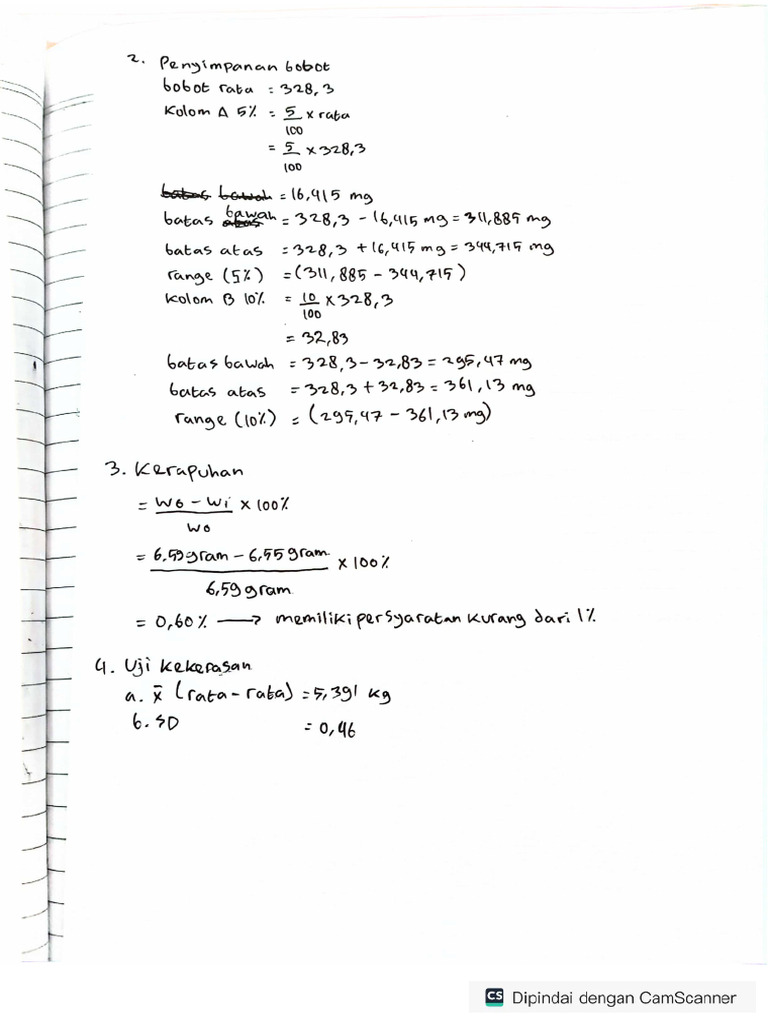 2. Penyimpanan bobot
bobot rata = 328,3
Kolom A 5% = 5/100 x rata
= 5/100 x 328,3
batas bawah = 16,415 mg
batas bawah atas = 328,3 - 16,415 mg = 311,885 mg
batas atas = 328,3 + 16,415 mg = 344,715 mg
range (5%) = (311,885 - 344,715)
Kolom B 10% = 10/100 x 328,3
= 32,83
batas bawah = 328,3 - 32,83 = 295,47 mg
batas atas = 328,3 + 32,83 = 361,13 mg
range (10%) = (295,47 - 361,13 mg)
3. Kerapuhan
= Wo - Wi / Wo x 100%
= 6,59 gram - 6,55 gram / 6,59 gram x 100%
= 0,60% → memiliki persyaratan kurang dari 1%
4. Uji kekerasan
a. x̄ (rata-rata) = 5,391 kg
b. SD = 0,46
CS Dipindai dengan CamScanner